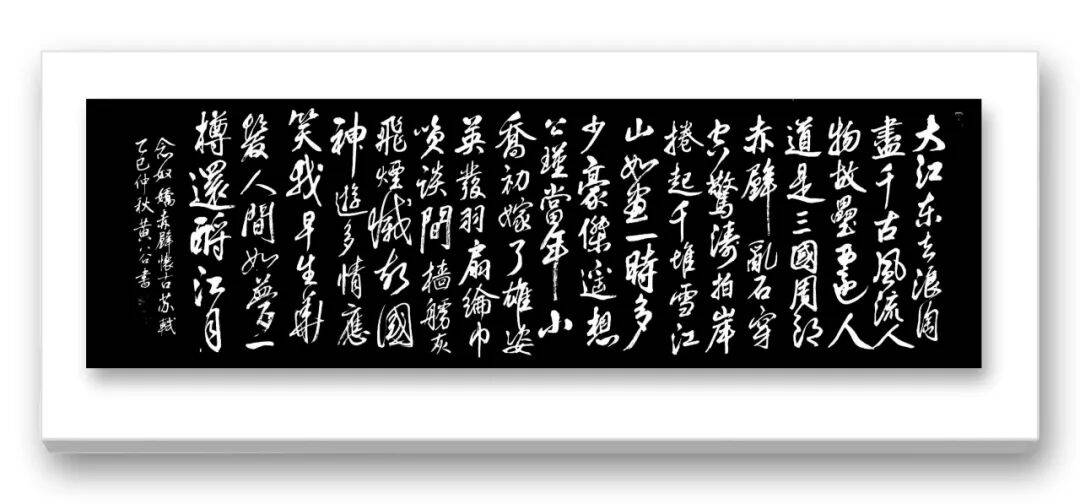 大江东去浪淘
盡千古風流人
物故壘西邊人
道是三國周郎
赤壁亂石穿
空驚濤拍岸
捲起千堆雪江
山如畫一時多
少豪傑遥想
公瑾當年小
喬初嫁了雄姿
英發羽扇綸巾
咲談間檣艣灰
飛煙滅故國
神遊多情應
笑我早生華
髮人間如夢一
樽還酹江月
念奴嬌赤壁懷古苏軾
乙巳仲秋黄公書